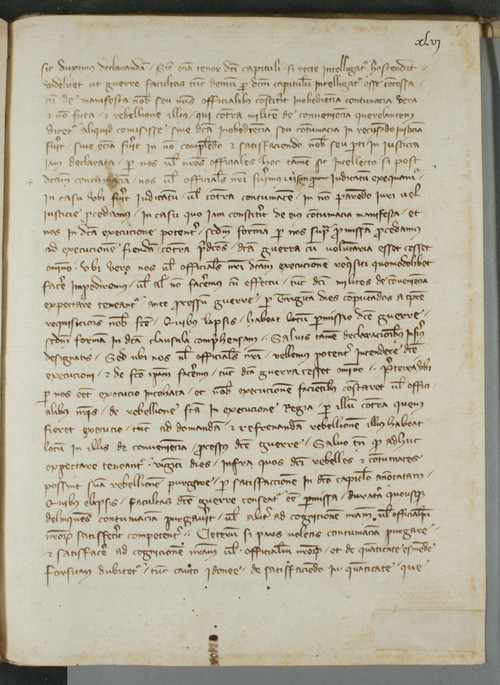 xlvj
sic duximus declarandum. Sic etiam tenor dicti capituli si recte intelligatur hostendit
videlicet ut guerre facultas tunc demum per dictum capitulum intelligatur esse concessa
cum de manifesta nobis seu nostris officialibus constiterit inobediencia contumacia vera
et non ficta et rebellione illius qui contra milites de conveniencia querelantem
dicetur aliquid comisisse sive dicta inobediencia seu contumacia in recusando iusticiam
fuerit sive eciam fuerit in non complendo et satisfaciendo nobis seu parti in iusticia
iam declarata per nos vel nostros officiales hoc tamen sic intellecto si post
dictam contumaciam nos vel officiales nostri iudicatum exequamur
in casu ubi fuerit iudicatum vel contra contumacem in non parendo iuri vel
iusticie procedamus in casu quo iam constiterit de eius contumacia manifesta et
nos in dicta execucione potenter secundum formam per nos superius premissam procedamus
ad execucionem fiendam contra predictos dicta guerra cum voluntaria esset cesset
omnino ubi vero nos vel officiales nostri dictam execucionem vel quomodolibet
facere impediremur vel al non facremus cum effectu tunc dicti milites de conveniencia
expectare teneantur ante processum guerre per viginti dies computandos a tempore
requisicionis nobis facte Quibus lapsis habeat locum permissio dicte guerre
secundum formam in dicta clausula comprehensam. Salvis tamen declaracionibus inferius
designatis. Sed ubi nos vel officiales nostri vellemus potenter intendere dicte
execucioni et de facto ipsam facremus tunc dicta guerra cesset omnino. Preterea ubi
per nos esset execucio incohata et nobis execucionem facientibus constaret vel offici
alibus nostris de rebellione facta in execucione Regia per illum contra quem
fieret execucio tunc ad domandam et refrenandam rebellionem illius habeat
locum in illis de conveniencia processus dicte guerre. Salvo tamen quod adhuc
expectare teneantur viginti dies infra quos dicti rebelles et contumaces
possint sua rebellione purgare per satisfaccionem in dicto capitulo annotatam
Quibus elapsis facultas dicte guerre censeatur esse permissa duratura quousque
delinquens contumaciam purgaverit vel aliter ad cognicionem nostram vel officialium
nostrorum satisfecerit competenter. Ceterum si parens volens contumaciam purgare
et satisfacere ad cognicionem nostram vel officialium nostrorum et de quantitate emende
forsitam dubitetur tunc caucio idonee de satisfaciendo in quantitate que